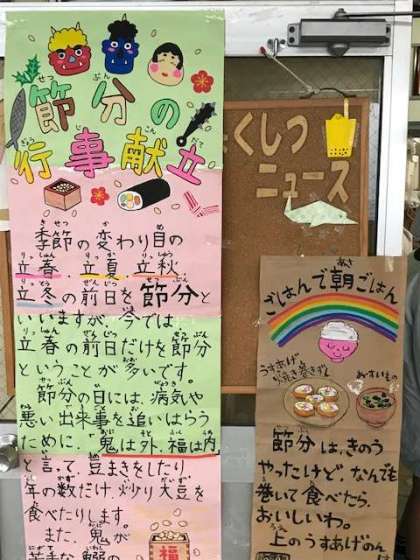 節分の
行事献立
季節の変わり目の
立春、立夏、立秋、
立冬の前日を節分と
いいますが、今では
立春の前日だけを節分
ということが多いです。
節分の日には、病気や
悪い出来事を追いはらう
ために、「鬼は外、福は内」
と言って、豆まきをしたり
年の数だけ、炒り大豆を
食べたりします。
また、鬼が
苦手な鰯の
福
くしつ
ニュース
ごはんで朝ごはん
うすあげ
節分は、きのう
やったけど、なんでも
巻いて食べたら、
おいしいわ。
上のうすあげのん